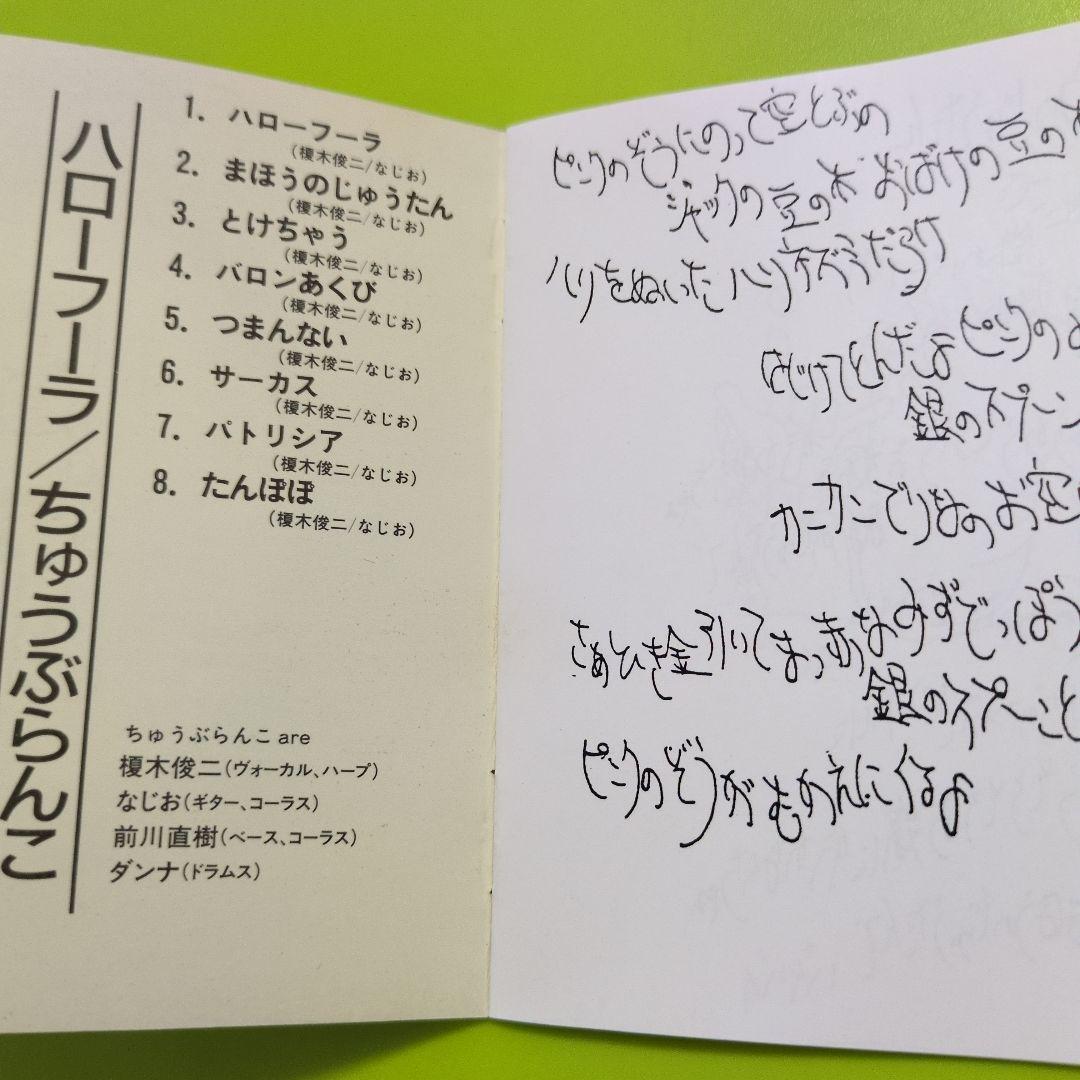 ハローフーラ/ちゅうぶらんこ
1. ハローフーラ
(榎木俊二/なじお)
2. まほうのじゅうたん
(榎木俊二/なじお)
3. とけちゃう
(榎木俊二/なじお)
4. バロンあくび
(榎木俊二/なじお)
5. つまんない
(榎木俊二/なじお)
6. サーカス
(榎木俊二/なじお)
7. パトリシア
(榎木俊二/なじお)
8. たんぽぽ
(榎木俊二/なじお)
ちゅうぶらんこ are
榎木俊二(ヴォーカル、ハープ)
なじお(ギター、コーラス)
前川直樹(ベース、コーラス)
ダンナ(ドラムス)
ピンクのぞうにのって空とぶの
ジャックの豆の木 おばけの豆の木
ハリをぬいたハリネズミだらけ
はじけてとんだよ ピンクの
銀のスプーン
カニカニで りぬの お空
さあ ひき金引いて まっ赤な みずでっぽう
銀のスプーンこと
ピンクのぞうが むかえにくるよ